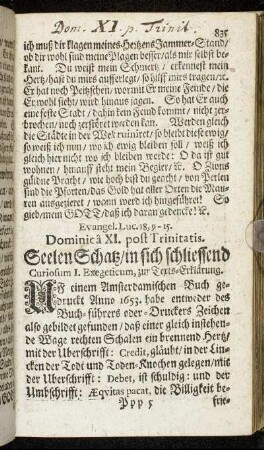 Dom. XI. p. Trinit.
831
ich muß dir klagen meines Hertzens Jammer-Stand/
ob dir wohl sind meine Plagen besser/als mir selbst be-
kant. Du weist mein Schmertz / erkennest mein
Hertz/hast du mirs aufferlegt/so hilff mirs tragen/ꝛc.
Er hat noch Peitschen/ womit Er meine Feinde/ die
Er wohl sieht/ wird hinaus jagen. So hat Er auch
eine feste Stadt/ dahin kein Feind kommt/ nicht zer-
brochen/noch zerstöret werden kan. Werden gleich
die Städte in der Welt ruiniret/ so bleibt diese ewig/
so weiß ich nun / wo ich ewig bleiben soll / weiß ich
gleich hier nicht wo ich bleiben werde: O da ist gut
wohnen / hinauff steht mein Begier/ ꝛc. O Zions
güldne Pracht/ wie hoch bist du geacht/ von Perlen
sind die Pforten/das Gold hat aller Orten die Mau-
ren ausgezieret / wann werd ich hingeführet! So
gieb/mein GOTT/daß ich daran gedencke! ꝛc.
Evangel. Luc. 18, 9 - 15.
Dominicâ XI. post Trinitatis.
Seelen Schatz/in sich schliessend
Curiosum I. Exegeticum, zur Texts-Erklärung.
Auß einem Amsterdamischen Buch ge-
druckt Anno 1653. habe entweder des
Buch-führers oder-Druckers Zeichen
also gebildet gefunden/ daß einer gleich instehen-
de Wage rechten Schalen ein brennend Hertz/
mit der Uberschrifft: Credit, gläubt/ in der Lin-
cken der Todt und Toden-Knochen gelegen/mit
der Uberschrifft: Debet, ist schuldig: und der
Umbschrifft: Æqvitas pacat, die Billigkeit be-
Ppp 5
frie-